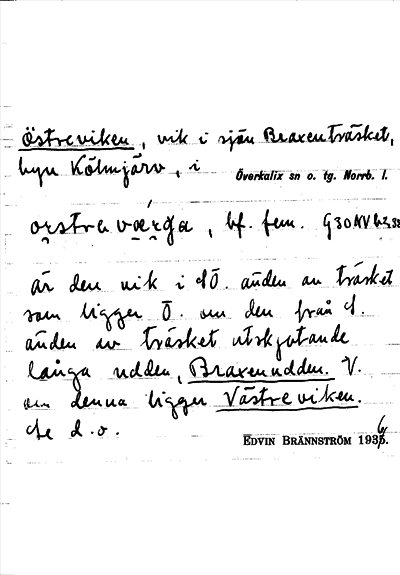 Östreviken, vik i sjön Braxenträsket,
byn Kölmjärv, i Överkalix sn o. tg. Norrb. l.
bf. fem.
är den vik i SÖ. änden av träsket
som ligger Ö. om den från S.
änden av träsket utskjutande
långa udden, Braxenudden. V.
om denna ligger Västreviken.
Se d.o.
EDVIN BRÄNNSTRÖM 1936.